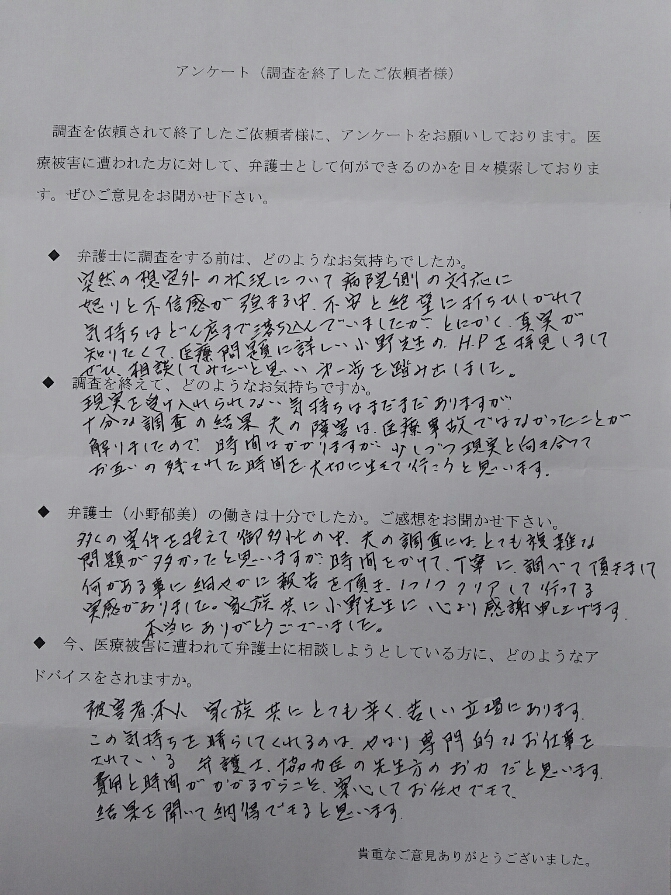 アンケート（調査を終了したご依頼者様）
調査を依頼されて終了したご依頼者様に、アンケートをお願いしております。医
療被害に遭われた方に対して、弁護士として何ができるのかを日々模索しておりま
す。ぜひご意見をお聞かせ下さい。
◆ 弁護士に調査をする前は、どのようなお気持ちでしたか。
突然の想定外の状況について病院側の対応に
怒りと不信感が強まる中、不安と絶望に打ちひしがれて
気持ちはどん底まで落ち込んでいましたが、とにかく、真実が
知りたくて、医療問題に詳しい小野先生のH.Pを拝見しまして
ぜひ、相談してみたいと思い、第一歩を踏み出しました。
◆ 調査を終えて、どのようなお気持ちですか。
現実を受け入れられない気持ちはまだまだありますが
十分な調査の結果夫の障害は、医療事故ではなかったことが
解りましたので、時間はかかりますが、少しづつ現実と向き合って
お互いの残された時間を、大切に生きて行こうと思います。
◆ 弁護士（小野郁美）の働きは十分でしたか。ご感想をお聞かせ下さい。
多くの案件を抱えて御多忙の中、夫の調査には、とても複雑な
問題が多かったと思いますが、時間をかけて、丁寧に、調べて頂きまして
何かある事に細やかに報告を頂き、1つ1つクリアして行ってる
実感がありました。家族共に小野先生に心より感謝申し上げます。
本当にありがとうございました。
◆ 今、医療被害に遭われて弁護士に相談しようとしている方に、どのようなア
ドバイスをされますか。
被害者、本人 家族共にとても辛く、苦しい立場にあります。
この気持ちを晴らしてくれるのは、やはり専門的なお仕事を
されている 弁護士、協力医の先生方のお力だと思います。
費用と時間がかかるからこそ、安心してお任せできて、
結果を聞いて納得できると思います。
貴重なご意見ありがとうございました。